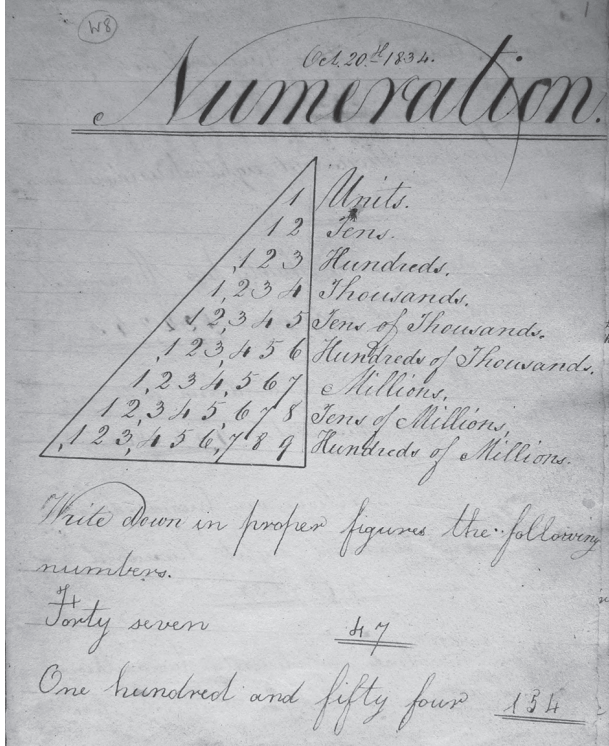 W8
1
Oct. 20th 1834.
Numeration.
1 Units.
1 2 Tens.
,1 2 3 Hundreds.
1,2 3 4 Thousands.
1 2,3 4 5 Tens of Thousands.
,1 2 3,4 5 6 Hundreds of Thousands.
1,2 3 4,5 6 7 Millions,
1 2,3 4 5,6 7 8 Tens of Millions,
,1 2 3,4 5 6,7 8 9 Hundreds of Millions.
Write Down in proper figures the following
numbers.
Forty seven 47
One hundred and fifty four 154